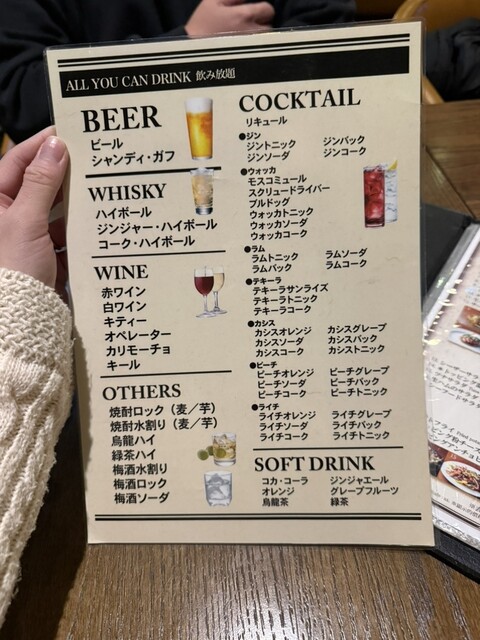 ALL YOU CAN DRINK 飲み放題
BEER
ビール
シャンディ・ガフ
WHISKY
ハイボール
ジンジャー・ハイボール
コーク・ハイボール
WINE
赤ワイン
白ワイン
キティー
オペレーター
カリモーチョ
キール
OTHERS
焼酎ロック（麦／芋）
焼酎水割り（麦／芋）
烏龍ハイ
緑茶ハイ
梅酒水割り
梅酒ロック
梅酒ソーダ
COCKTAIL
リキュール
●ジン
ジントニック ジンバック
ジンソーダ ジンコーク
●ウォッカ
モスコミュール
スクリュードライバー
ブルドッグ
ウォッカトニック
ウォッカソーダ
ウォッカコーク
●ラム
ラムトニック ラムソーダ
ラムバック ラムコーク
●テキーラ
テキーラサンライズ
テキーラトニック
テキーラコーク
●カシス
カシスオレンジ カシスグレープ
カシスソーダ カシスバック
カシスコーク カシストニック
●ピーチ
ピーチオレンジ ピーチグレープ
ピーチソーダ ピーチバック
ピーチコーク ピーチトニック
●ライチ
ライチオレンジ ライチグレープ
ライチソーダ ライチバック
ライチコーク ライチトニック
SOFT DRINK
コカ・コーラ ジンジャエール
オレンジ グレープフルーツ
烏龍茶 緑茶